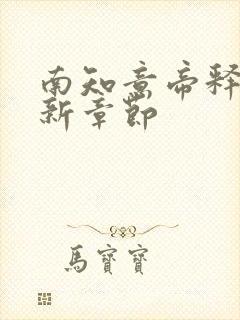 南知意帝释
新章節
馬寶寶